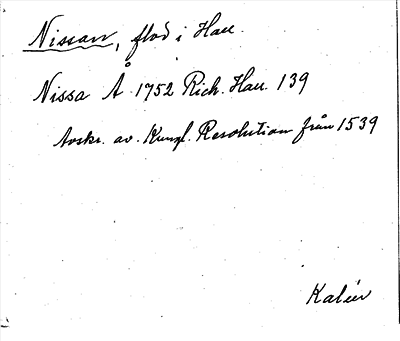 Nissan, flod i Hall.
Nissa Å 1752 Rich. Hall. 139
Avskr. av. Kungl. Resolution från 1539
Kalén